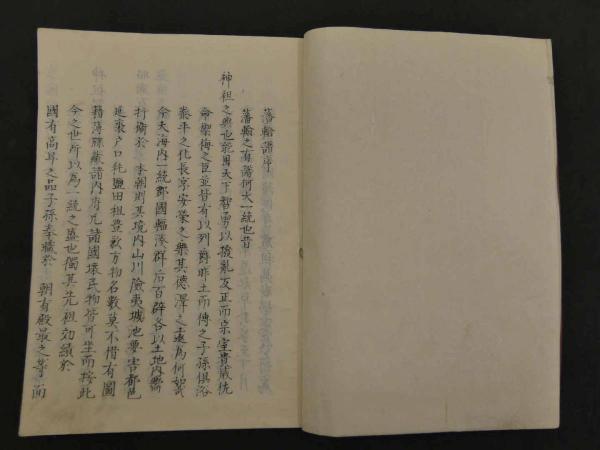 藩翰譜序
藩翰之有譜何大一統也昔
神祖之興也範圍天下智勇以撥亂反正而宗室貴戚統
禦之臣並皆有以列爵昨土而傳之子孫俱浴
泰平之化長享安榮之樂其德澤之遠為何如哉
今天海內一統郡國輻湊群后百辟各以土地內
於 本朝則其境內山川險夷城池要害都邑
廣袤户口秏鹽田租登數方物名數莫不悉有圖
籍簿録藏諸內府凡諸國壤民物皆可坐而按此
今之世所以為一統之盛也獨其先祖効績於
國有高卑之品子孫奉職於 朝有殿最之等而